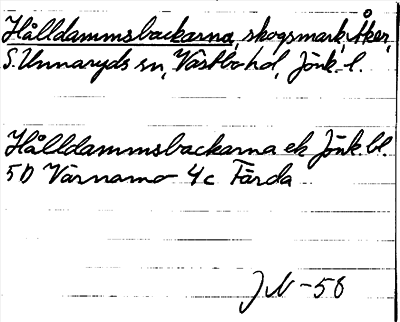 Hålldammsbackarna, skogsmark, Åker,
S. Unnaryds sn, Västbo hd, Jönk. l.
Hålldammsbackarna ek Jönk. bl.
5D Värnamo 4c Färda
JN-58